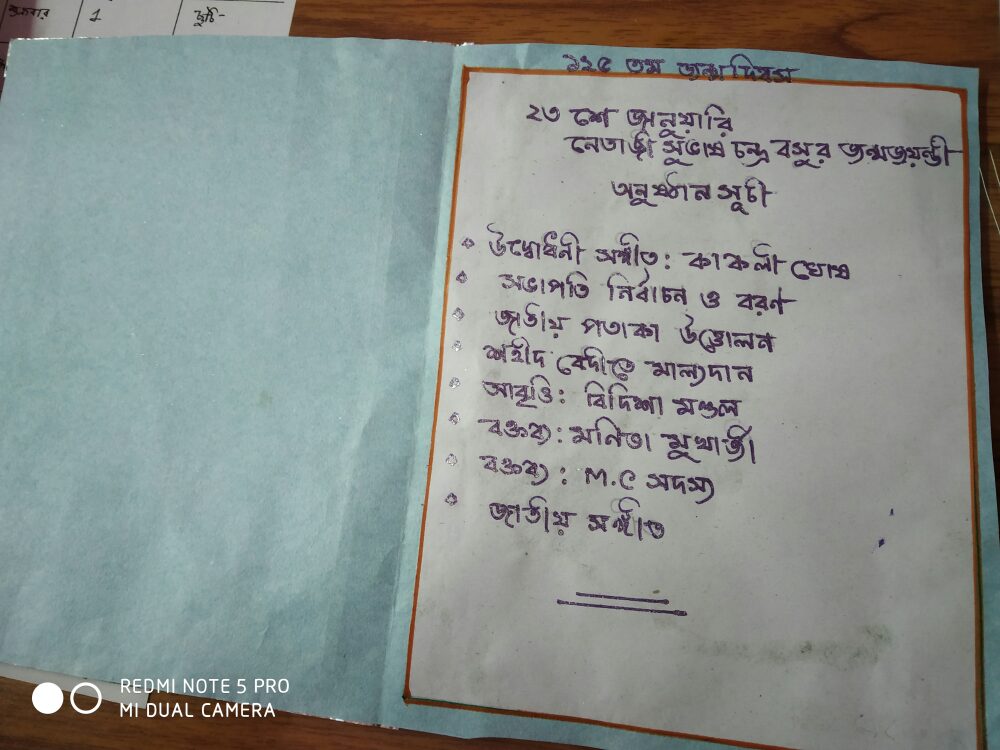 শুক্রবার
1
ছুটি-
১২৫ তম জন্মদিবস
২৩ শে জানুয়ারি
নেতাজী সুভাষ চন্দ্র বসুর জন্মজয়ন্তী
অনুষ্ঠান সূচী
উদ্বোধনী সঙ্গীত: কাকলী ঘোষ
সভাপতি নির্বাচন ও বরণ
জাতীয় পতাকা উত্তোলন
শহীদ বেদীতে মাল্যদান
আবৃত্তি: বিদিশা মণ্ডল
বক্তব্য: মনিতা মুখার্জী
বক্তব্য: M.C সদস্য
জাতীয় সঙ্গীত
REDMI NOTE 5 PRO
MI DUAL CAMERA